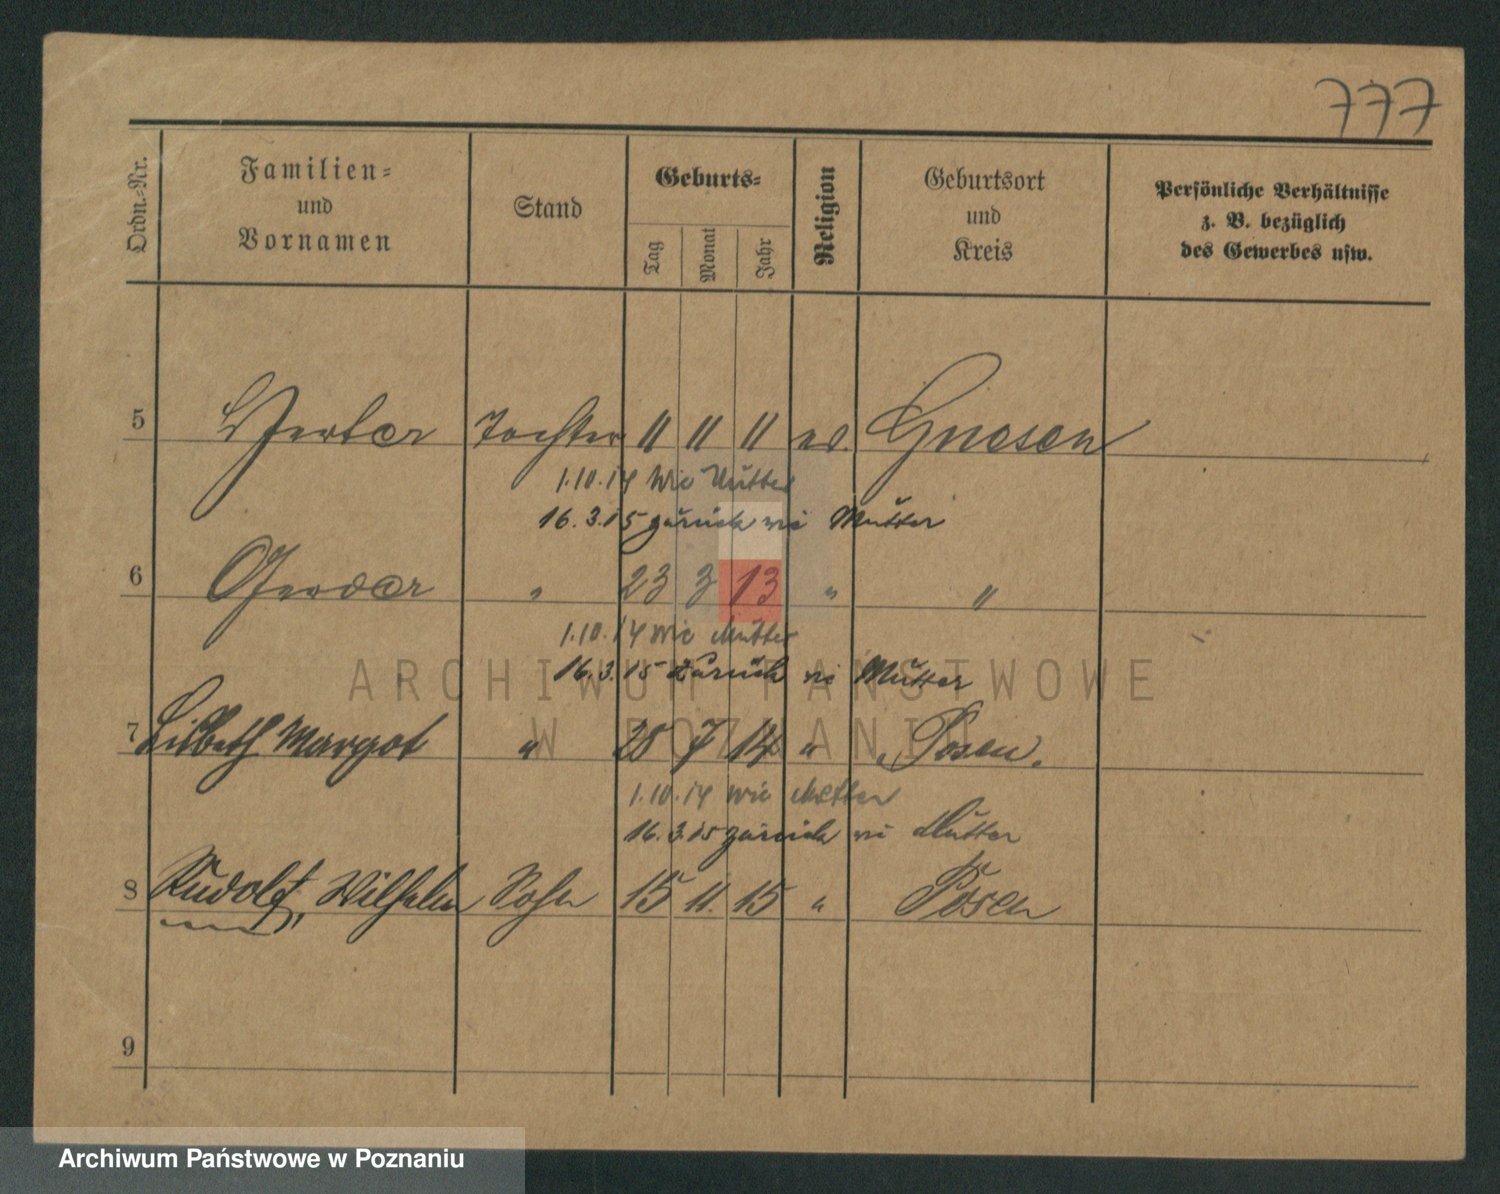 777
Ordn.-Nr.
Familien-
und
Vornamen
Stand
Geburts-
Tag
Monat
Jahr
Religion
Geburtsort
und
Kreis
Persönliche Verhältnisse
z. B. bezüglich
des Gewerbes usw.
5 Tochter 11 11 11 ev. Gnesen
1.10.14 wie Mutter
16.3.15 zurück wie Mutter
6 Gerda " 23 3 13 " "
1.10.14 wie Mutter
16.3.15 zurück wie Mutter
7 Lisbeth Margot " 28 7 14 " Posen.
1.10.14 wie Mutter
16.3.15 zurück wie Mutter
8 Rudolf, Wilhelm Sohn 15 11. 15 " Posen
9
ARCHIWUM PAŃSTWOWE
W POZNANIU
Archiwum Państwowe w Poznaniu